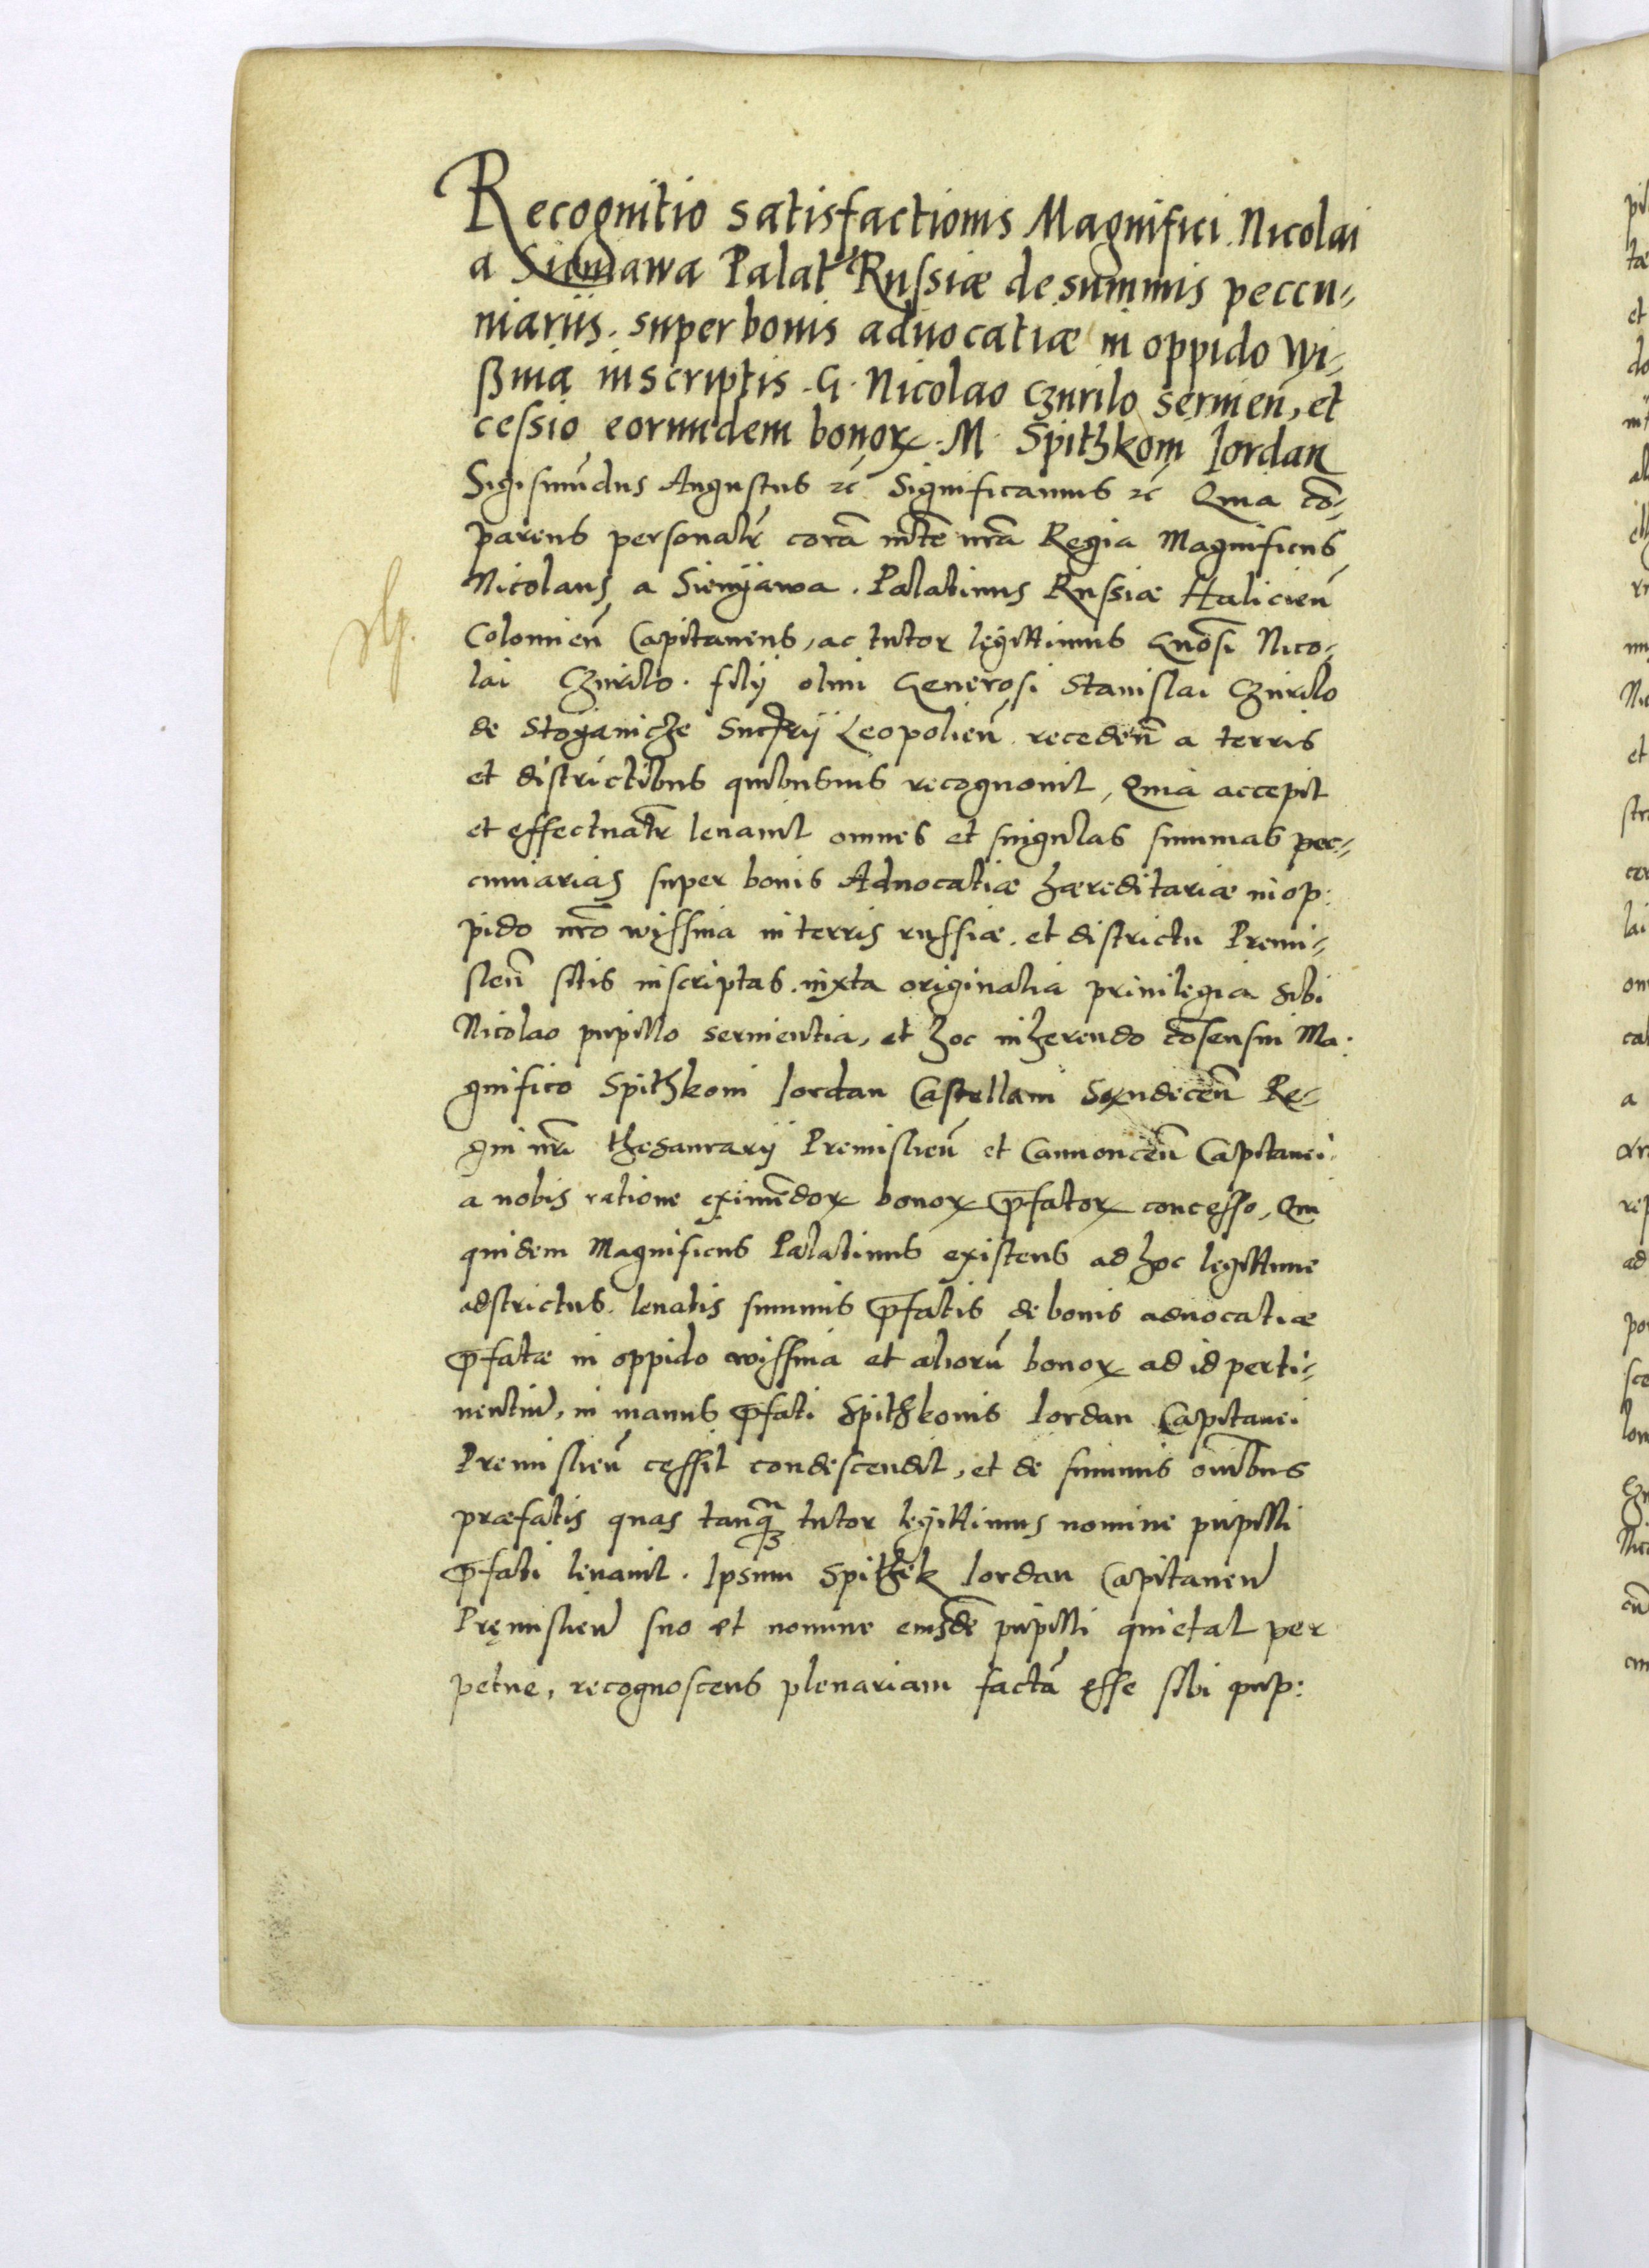 Recognitio satisfactionis Magnifici Nicolai
a Sieniawa Palat Russiæ de summis peccu-
niariis super bonis aduocatiæ in oppido Wi-
ßnia inscriptis G. Nicolao Czurilo seruieñ, et
cessio eorundem bonoꝝ M Spithkoni Iordan
Sigismūdus Augustus ⁊c̃ Significamus ⁊c̃ Quia cō-
parens personalr̃ corā mte nrā Regia Magnificus
Nicolaus a Sienyawa. Palatinus Russiæ Halicieñ
Colomieñ Capitaneus, ac tutor legittimus Gnōsi Nico-
lai Czurilo. filij olim Generosi Stanislai Czurilo
de Stoganicze Succrij Leopolieñ. recedeñ a terris
et districtibus quibusuis recognouit, Quia accepit
et effectuatr̃ leuauit omnes et singulas summas pec-
cuniarias super bonis Aduocatiæ hæreditariæ in op:
pido nrō wissnia in terris russiæ. et districtu Premi-
slieñ sitis inscriptas. iuxta originalia priuilegia sibi
Nicolao pupillo seruientia, et hoc inherendo cōsensui Ma:
gnifico Spithkoni Iordan Castellani Sandeceñ Re-
gni nrī thesaurarij Premislieñ et Camionceñ Capitanei.
a nobis ratione eximēdoꝝ bonoꝝ p̄fatoꝝ concesso, Qui
quidem Magnificus Palatinus existens ad hoc legittime
adstrictus. leuatis summis p̄fatis de bonis aduocatiæ
p̄fatæ in oppido wissnia et aliorū bonoꝝ ad id perti-
nentiū, in manus p̄fati Spithkonis Iordan Capitanei
Premislieñ cessit condescendit, et de summis oīnibus
præfatis quas tanq̃ tutor legittimus nomine pupilli
p̄fati leuauit. Ipsum Spithek Iordan Capitaneū
Pręmislieñ suo et nomine eiusdē pupilli quietat per
petue, recognoscens plenariam factā esse sibi pup: